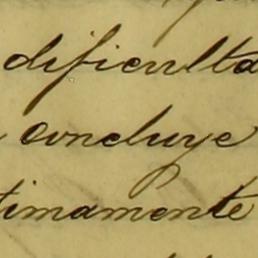 dificulta
concluye
timamente